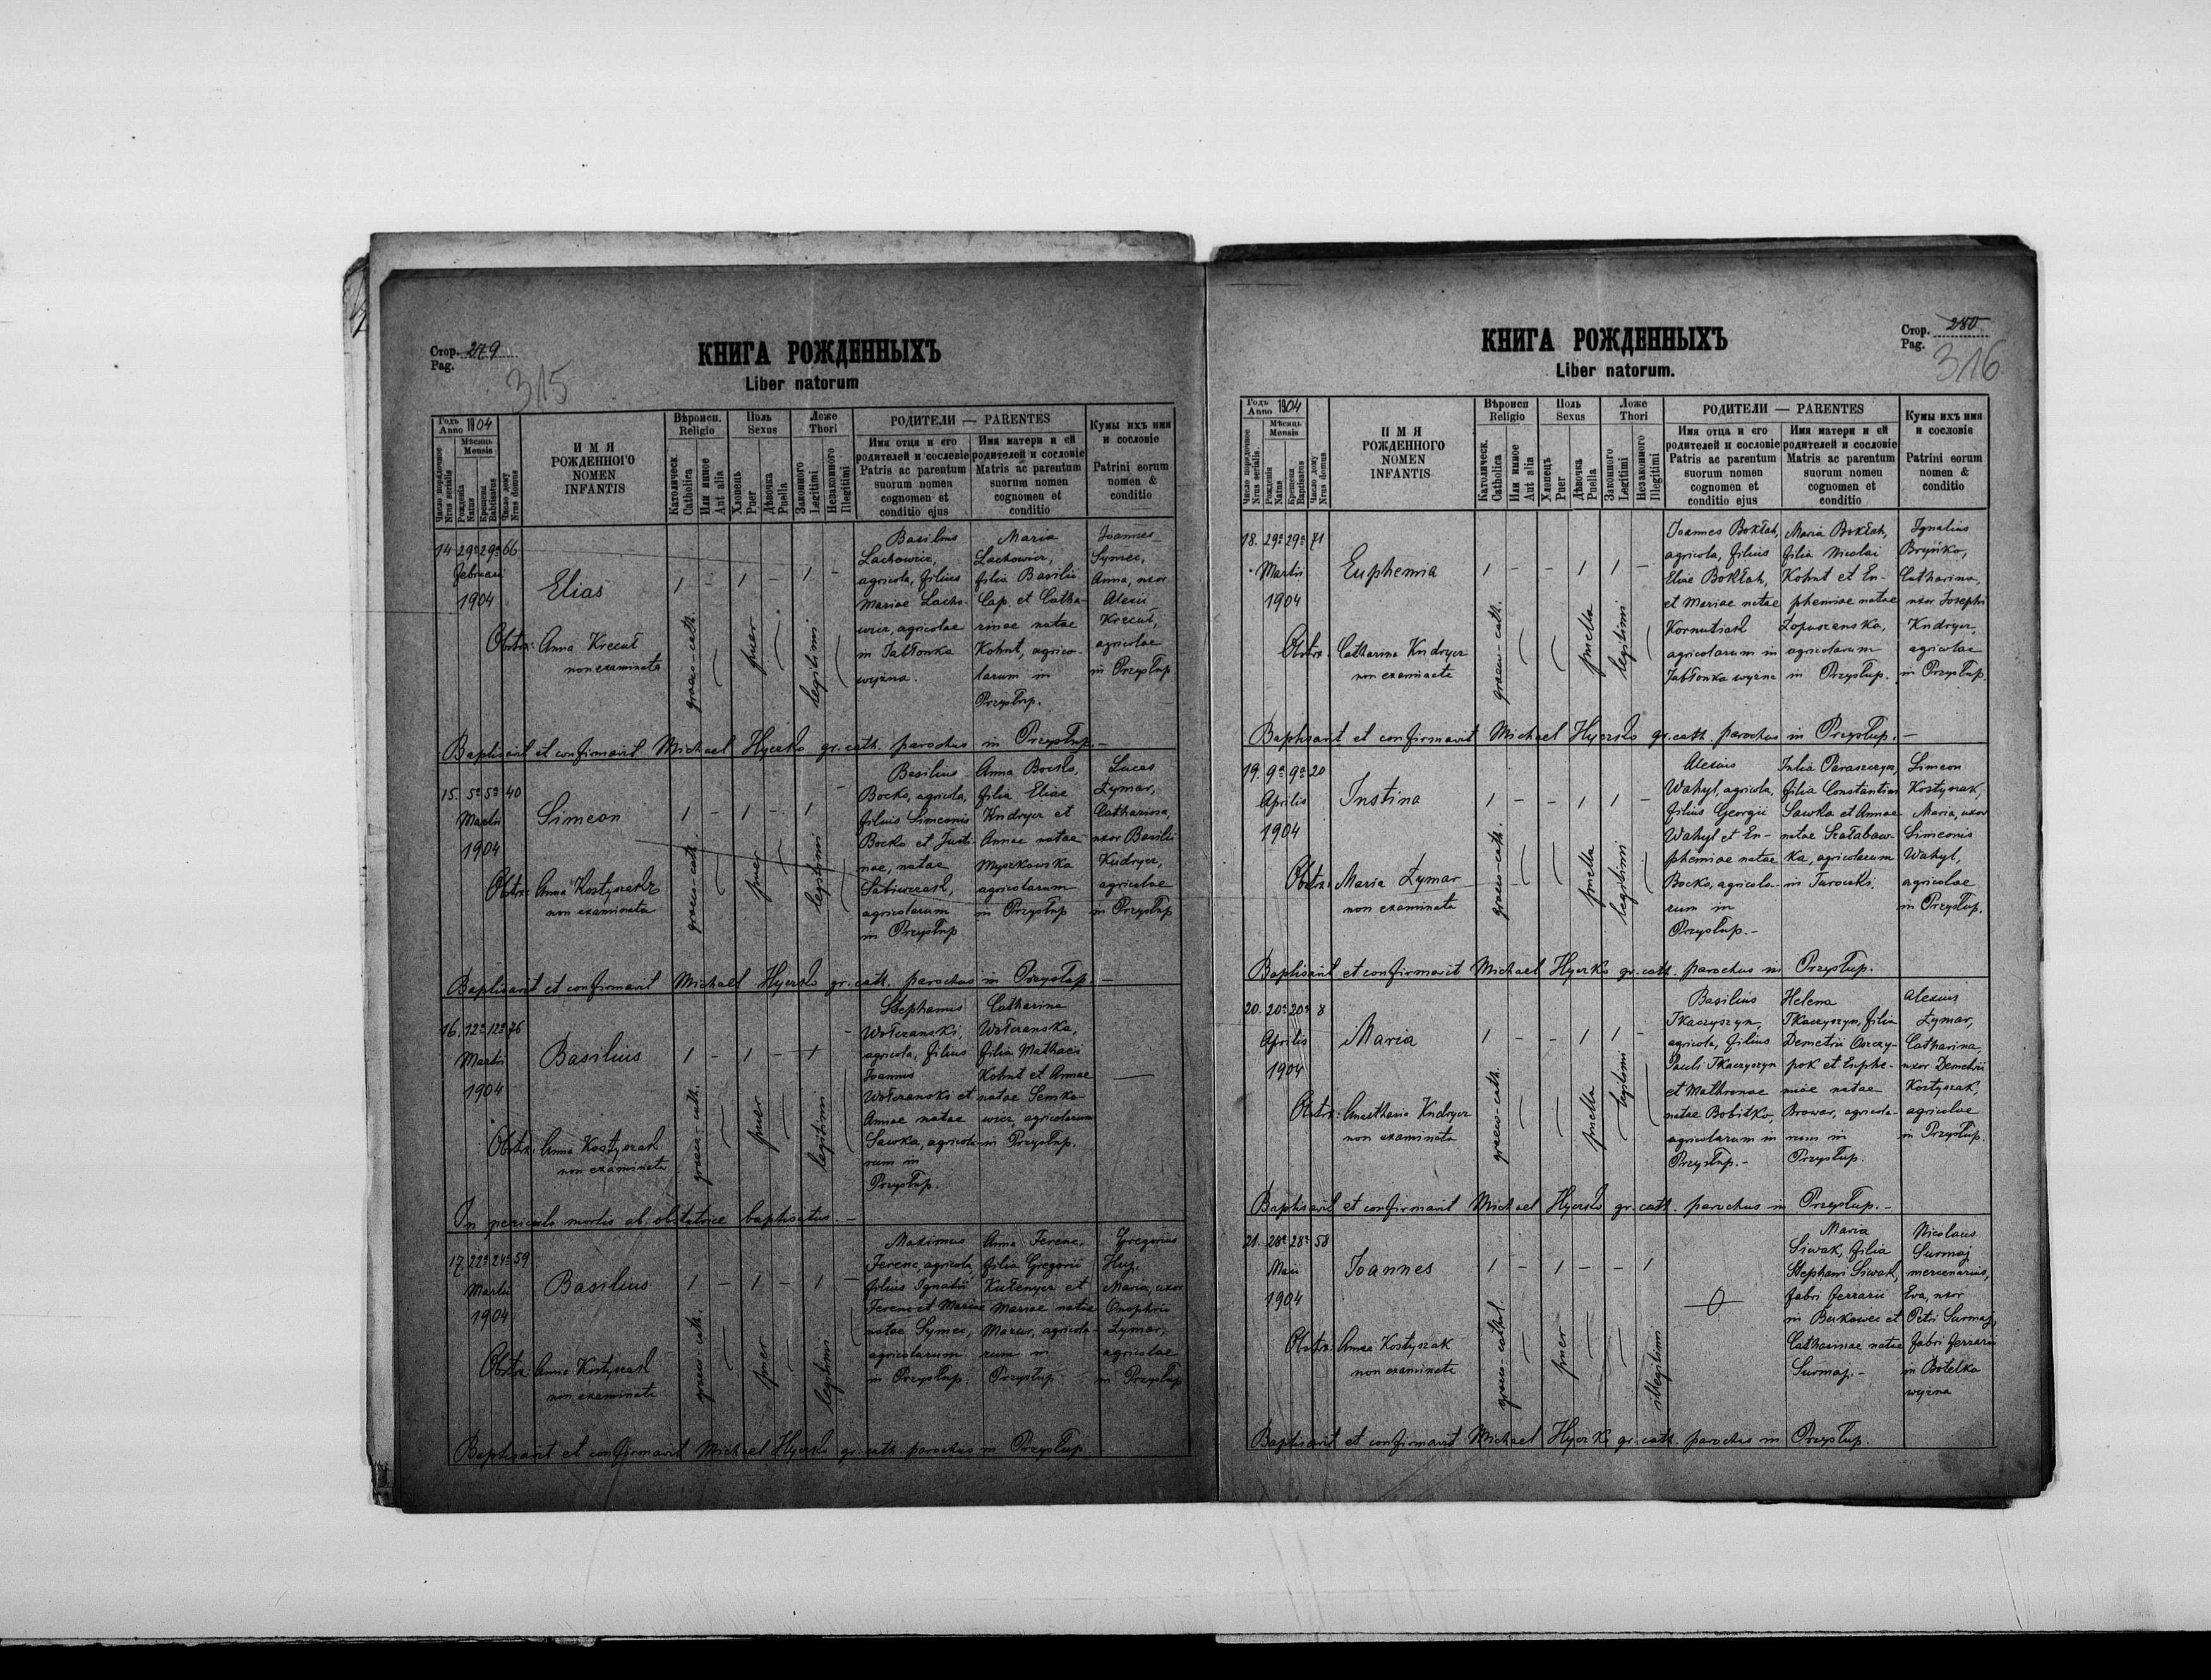 Стор. 279
Pag.
315
КНИГА РОЖДЕННЫХЪ
Liber natorum
Годъ
Anno 1904
Мѣсяць
Mensis
Число порядковое
Nrus serialis
Рожденія
Natus
Крещенія
Babtisatus
Число дому
Nrus domus
И М Я
РОЖДЕННОГО
NOMEN
INFANTIS
Вѣроисп.
Religio
Католическ.
Catholica
Или инное
Aut alia
Полъ
Sexus
Хлопець
Puer
Дѣвочка
Puella
Ложе
Thori
Законного
Legitimi
Незаконного
Illegitimi
РОДИТЕЛИ — PARENTES
Имя отца и его
родителей и сословіе
Patris ac parentum
suorum nomen
cognomen et
conditio ejus
Имя матери и ей
родителей и сословіе
Matris ac parentum
suorum nomen
cognomen et
conditio
Кумы ихъ имя
и сословіе
Patrini eorum
nomen &
conditio
14 29ª 29ª 66
Februarii
1904
Elias
Obstrx: Anna Krecuł
non examinata
1 - 1 - 1 -
graeco-cath.
puer
legitimi
Basilius
Lachowicz,
agricola, filius
Mariae Lacho-
wicz, agricolae
in Jabłonka
wyżna.
Maria
Lachowicz,
filia Basilii
Cap. et Catha-
rinae natae
Kohut, agrico-
larum in
Przysłup.
Joannes
Symec,
Anna, uxor
Alexii
Krecuł,
agricolae
in Przysłup
Baptisavit et confirmavit Michael Hycrko gr.cath. parochus in Przysłup.-
15. 5ª 5ª 40
Martii
1904
Simeon
Obstrx: Anna Kostyszak
non examinata
1 - 1 - 1 -
graeco-cath.
puer
legitimi
Basilius
Bocko, agricola,
filius Simeonis
Bocko et Justi-
nae, natae
agricolarum
in Przysłup
Anna Bocko,
filia Eliae
Kudrycz et
Annae natae
Myszkowska
agricolarum
in Przysłup
Lucas
Żymar,
Catharina,
uxor Basilii
Kudrycz,
agricolae
in Przysłup
Baptisavit et confirmavit Michael Hycrko gr.cath. parochus in Przysłup.-
16. 12ª 12ª 76
Martii
1904
Basilius
Obstrx: Anna Kostyszak
non examinata
1 - 1 - 1 -
graeco-cath.
puer
legitimi
Stephanus
Wołczanski,
agricola, filius
Joannis
Wołczanski et
Annae natae
Sawka, agricola-
rum in
Przysłup.
Catharina
Wołczanska,
filia Mathaei
Kohut et Annae
natae Semko-
wicz, agricolarum
in Przysłup.
—
In periculo mortis ab obstetrice baptisatus.-
17. 22ª 24ª 59
Martii
1904
Basilius
Obstrx: Anna Kostyszak
non examinata
1 - 1 - 1 -
graeco-cath.
puer
legitimi
Maximus
Ferenc, agricola,
filius Ignatii
Ferenc et Mariae
natae Symec,
agricolarum
in Przysłup.
Anna Ferenc,
filia Gregorii
Kułenycz et
Mariae natae
Mazur, agricola-
rum in
Przysłup
Gregorius
Huj,
Maria, uxor
Onophrii
Żymar,
agricolae
in Przysłup
Baptisavit et confirmavit Michael Hycrko gr.cath. parochus in Przysłup.
Стор. 280
Pag.
316
КНИГА РОЖДЕННЫХЪ
Liber natorum.
Годъ
Anno 1904
Мѣсяць
Mensis
Число порядковое
Nrus serialis.
Рожденія
Natus
Крещенія
Baptisatus
Число дому
Nrus domus
И М Я
РОЖДЕННОГО
NOMEN
INFANTIS
Вѣроисп
Religio
Католическ.
Catholica
Или инное
Aut alia
Полъ
Sexus
Хлопець
Puer
Дѣвочка
Puella
Ложе
Thori
Законного
Legitimi
Незаконного
Illegitimi
РОДИТЕЛИ — PARENTES
Имя отца и его
родителей и сословіе
Patris ac parentum
suorum nomen
cognomen et
conditio ejus
Имя матери и ей
родителей и сословіе
Matris ac parentum
suorum nomen
cognomen et
conditio
Кумы ихъ имя
и сословіе
Patrini eorum
nomen &
conditio
18. 29ª 29ª 71
Martii
1904
Euphemia
Obstrx: Catharina Kudrycz
non examinata
1 - - 1 1 -
graeco-cath.
puella
legitimi
Joannes Bokłah,
agricola, filius
Eliae Bokłah,
et Mariae natae
Kornutiak
agricolarum in
Jabłonka wyżna
Maria Bokłah,
filia Nicolai
Kohut et Eu-
phemiae natae
Łopuszanska,
agricolarum
in Przysłup.
Ignatius
Bryńko,
Catharina,
uxor Josephi
Kudrycz,
agricolae
in Przysłup.
Baptisavit et confirmavit Michael Hycrko gr.cath. parochus in Przysłup.-
19. 9ª 9ª 20
Aprilis
1904
Justina
Obstrx: Maria Żymar
non examinata
1 - - 1 1 -
graeco-cath.
puella
legitimi
Alexius
Wahyl, agricola,
filius Georgii
Wahyl et Eu-
phemiae natae
Bocko, agricola-
rum in
Przysłup.-
Julia Paraszczycz,
filia Constantini
Sawka et Annae
natae Szałabaw-
ka, agricolarum
in Turoczki.
Simeon
Kostyszak,
Maria, uxor
Simeonis
Wahyl,
agricolae
in Przysłup.
Baptisavit et confirmavit Michael Hycrko gr.cath. parochus in Przysłup.
20. 20ª 20ª 8
Aprilis
1904
Maria
Obstrx: Anastasia Kudrycz
non examinata
1 - - 1 1 -
graeco-cath.
puella
legitimi
Basilius
Tkaczyszyn,
agricola, filius
Pauli Tkaczyszyn
et Mathronae
natae Bobitko,
agricolarum in
Przysłup.-
Helena
Tkaczyszyn, filia
Demetrii Oszczy-
pok et Euphe-
miae natae
Browar, agricola-
rum in
Przysłup.
Alexius
Żymar,
Catharina,
uxor Demetrii
Kostyszak,
agricolae
in Przysłup.
Baptisavit et confirmavit Michael Hycrko gr.cath. parochus in Przysłup.-
21. 28ª 28ª 58
Maii
1904
Joannes
Obstrx: Anna Kostyszak
non examinata
1 - 1 - - 1
graeco-cathol.
puer
illegitimi
Maria
Siwak, filia
Stephani Siwak,
fabri ferrarii
in Butkowiec et
Catharinae natae
Surmaj.-
Nicolaus
Surmaj
mercenarius,
Eva, uxor
Petri Surmaj,
fabri ferrarii
in Botelka
wyżna
Baptisavit et confirmavit Michael Hycrko gr.cath. parochus in Przysłup.